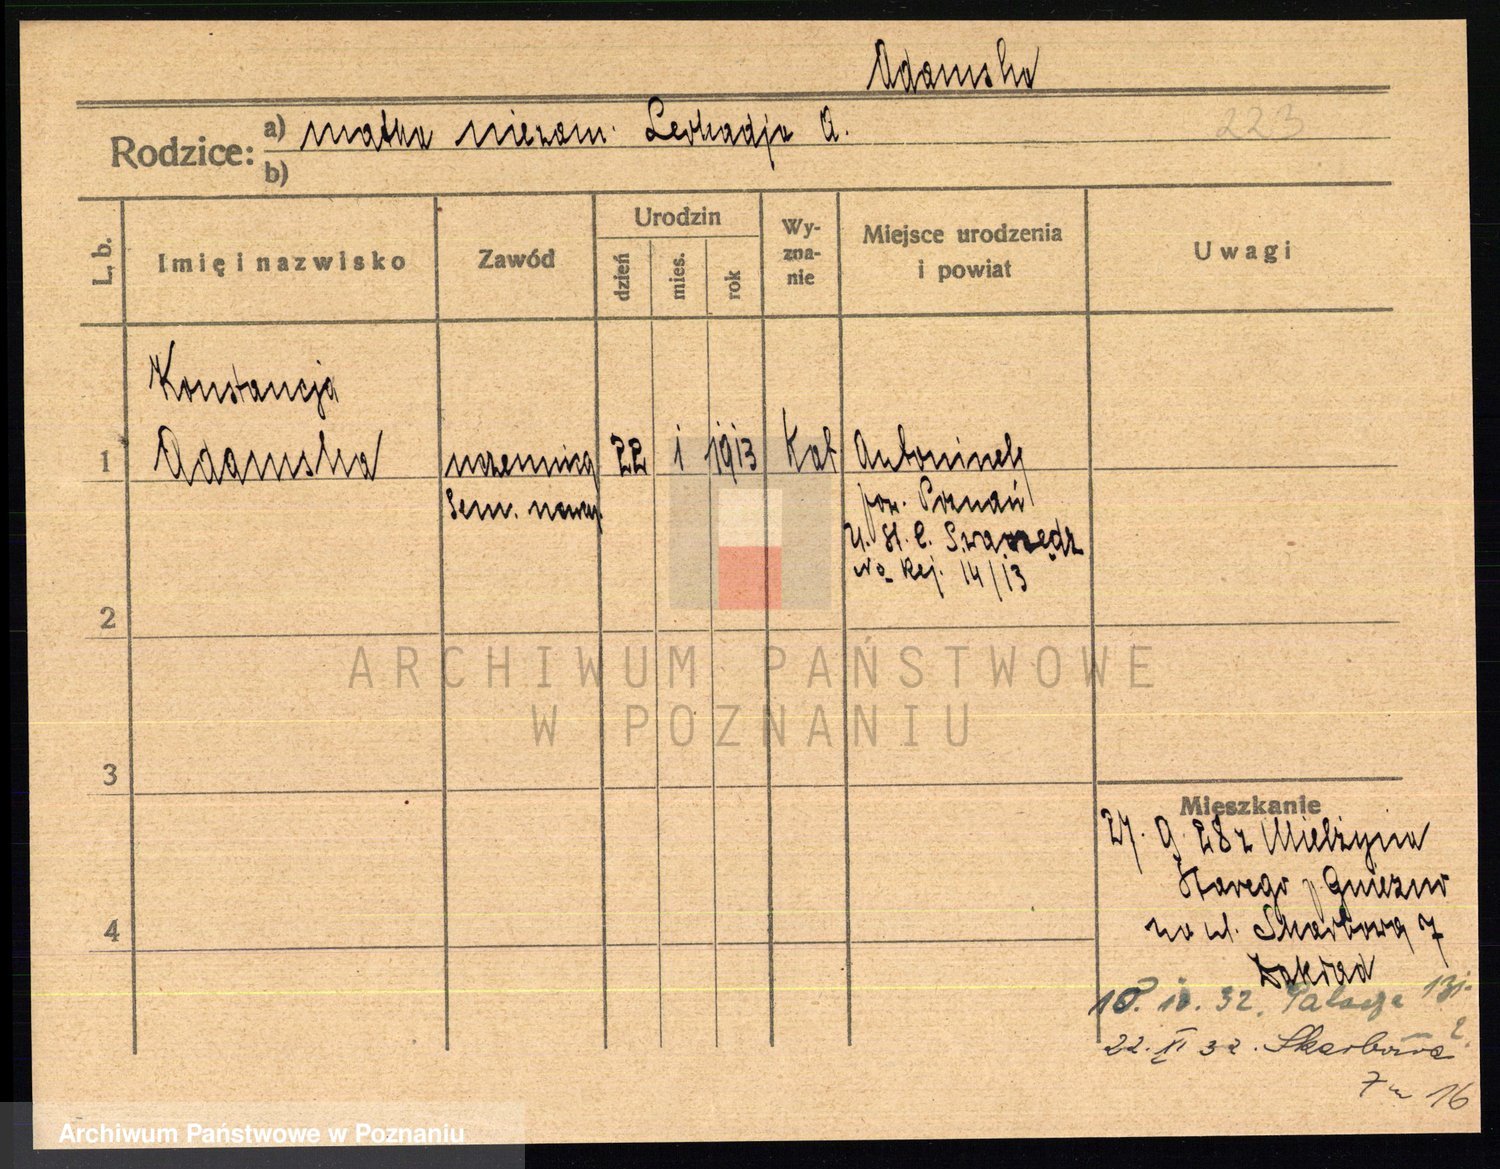 Adamska
223
Rodzice: a) matka niezam. Leokadja A.
b)
L. b.
Imię i nazwisko
Zawód
Urodzin
dzień
mies.
rok
Wy-
zna-
nie
Miejsce urodzenia
i powiat
Uwagi
Konstancja
1 Adamska uczennica 22 1 1913 Kat Antoninek
Sem. naucz. pow. Poznań
U. St. C. Swarzędz
No Rej. 14/13
2
3
4
Mieszkanie
27. 9 28 z Mielżyna
Starego p Gniezno
na ul. Skarbową 7
Zakład
10. 32.
22. XI 32. Skarbowa
7 m 16
ARCHIWUM PAŃSTWOWE
W POZNANIU
Archiwum Państwowe w Poznaniu